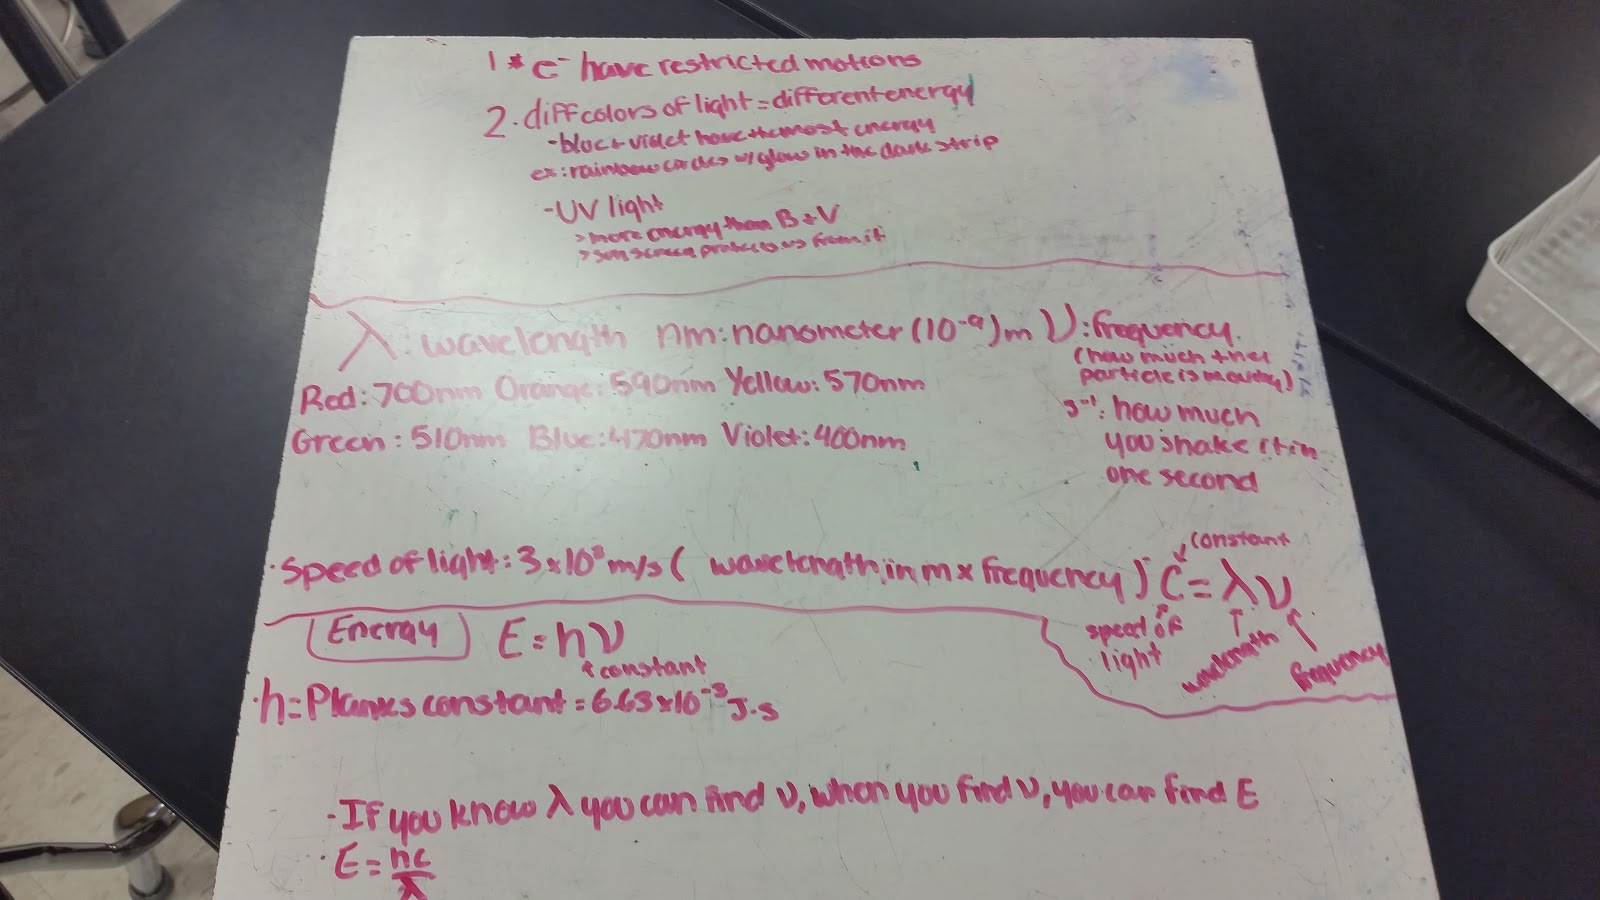 1 * e⁻ have restricted motions
2. diff colors of light = different energy
- blue + violet have the most energy
ex: rainbow circles w/ glow in the dark strip
- UV light
> more energy than B + V
> sun screen protects us from it
λ: wavelength nm: nanometer (10⁻⁹)m ν: frequency.
(how much the
particle is moving)
Red: 700nm Orange: 590nm Yellow: 570nm
s⁻¹: how much
Green: 510nm Blue: 470nm Violet: 400nm
you shake it in
one second
constant
· Speed of light: 3x10⁸ m/s ( wavelength in m x frequency ) C = λν
speed of
light
wavelength
frequency
Energy E = hν
constant
· h = Planks constant = 6.63x10⁻³ J·s
- If you know λ you can find ν, when you find ν, you can find E
· E = hc/λ